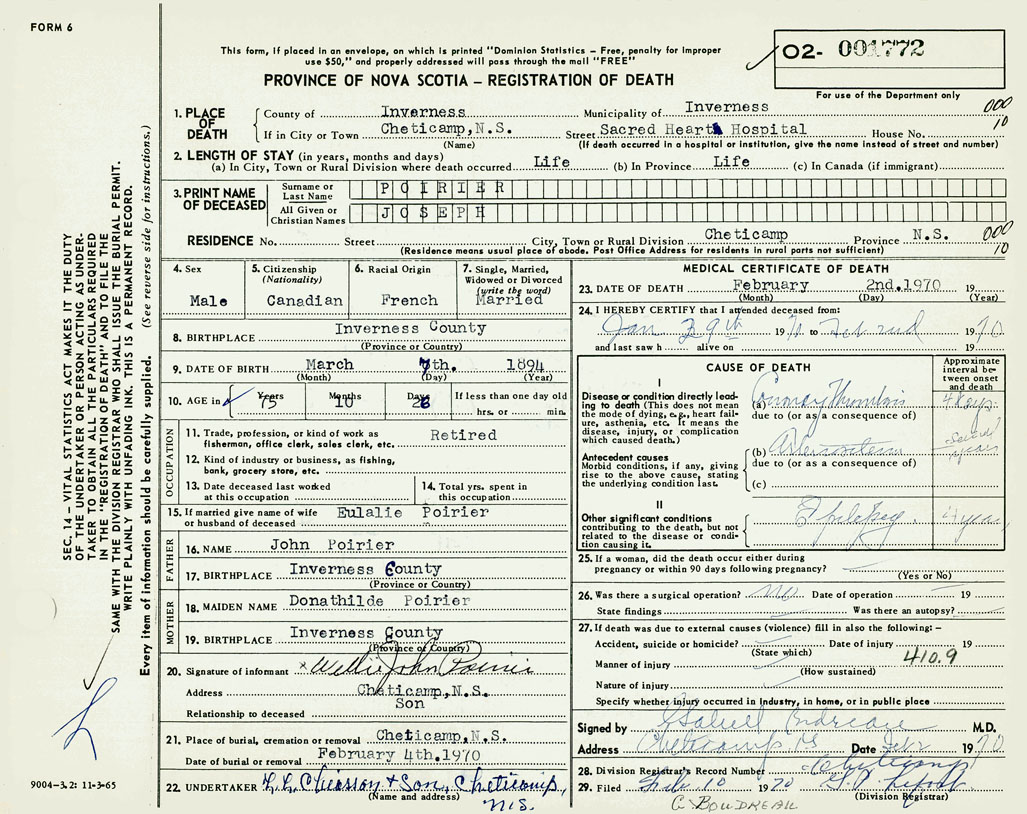 FORM 6
This form, if placed in an envelope, on which is printed "Dominion Statistics – Free, penalty for improper
use $50," and properly addressed will pass through the mail "FREE"
02- 001772
For use of the Department only
PROVINCE OF NOVA SCOTIA – REGISTRATION OF DEATH
1. PLACE OF DEATH
County of Inverness Municipality of Inverness 000
If in City or Town Cheticamp, N.S. Street Sacred Heart Hospital House No. 10
(Name) (If death occurred in a hospital or institution, give the name instead of street and number)
2. LENGTH OF STAY (in years, months and days)
(a) In City, Town or Rural Division where death occurred Life (b) In Province Life (c) In Canada (if immigrant)
3. PRINT NAME OF DECEASED
Surname or Last Name POIRIER
All Given or Christian Names JOSEPH
RESIDENCE No. Street City, Town or Rural Division Cheticamp Province N.S. 000
(Residence means usual place of abode. Post Office Address for residents in rural parts not sufficient) 10
4. Sex Male
5. Citizenship (Nationality) Canadian
6. Racial Origin French
7. Single, Married, Widowed or Divorced (write the word) Married
8. BIRTHPLACE Inverness County
(Province or Country)
9. DATE OF BIRTH March 7th. 1894
(Month) (Day) (Year)
10. AGE in Years 75 Months 10 Days 26 If less than one day old hrs. or min.
OCCUPATION
11. Trade, profession, or kind of work as fisherman, office clerk, sales clerk, etc. Retired
12. Kind of industry or business, as fishing, bank, grocery store, etc.
13. Date deceased last worked at this occupation
14. Total yrs. spent in this occupation
15. If married give name of wife or husband of deceased Eulalie Poirier
FATHER
16. NAME John Poirier
17. BIRTHPLACE Inverness County
(Province or Country)
MOTHER
18. MAIDEN NAME Donathilde Poirier
19. BIRTHPLACE Inverness County
(Province or Country)
20. Signature of informant x Willie John Poirier
Address Cheticamp, N.S.
Relationship to deceased Son
21. Place of burial, cremation or removal Cheticamp, N.S.
Date of burial or removal February 4th. 1970
22. UNDERTAKER Chiasson & Son, Cheticamp,
(Name and address) N.S.
MEDICAL CERTIFICATE OF DEATH
23. DATE OF DEATH February 2nd. 1970 19
(Month) (Day) (Year)
24. I HEREBY CERTIFY that I attended deceased from:
Jan 29th 1970 to Feb 2nd 1970
and last saw h alive on 19
CAUSE OF DEATH
Approximate interval between onset and death
I
Disease or condition directly leading to death (This does not mean the mode of dying, e.g., heart failure, asthenia, etc. It means the disease, injury, or complication which caused death.)
(a) Coronary Thrombosis 4 days
due to (or as a consequence of)
Antecedent causes
Morbid conditions, if any, giving rise to the above cause, stating the underlying condition last.
(b) several years
due to (or as a consequence of)
(c)
II
Other significant conditions contributing to the death, but not related to the disease or condition causing it.
Epilepsy years
25. If a woman, did the death occur either during pregnancy or within 90 days following pregnancy?
(Yes or No)
26. Was there a surgical operation? no Date of operation 19
State findings Was there an autopsy?
27. If death was due to external causes (violence) fill in also the following: –
Accident, suicide or homicide? Date of injury 19
(State which) 410.9
Manner of injury
(How sustained)
Nature of injury
Specify whether injury occurred in industry, in home, or in public place
Signed by M.D.
Address Cheticamp NS Date Feb 2 1970
28. Division Registrar's Record Number Cheticamp
29. Filed Feb 10 1970
(Division Registrar)
C. BOUDREAU
SEC. 14 – VITAL STATISTICS ACT MAKES IT THE DUTY
OF THE UNDERTAKER OR PERSON ACTING AS UNDER-
TAKER TO OBTAIN ALL THE PARTICULARS REQUIRED
IN THE "REGISTRATION OF DEATH" AND TO FILE THE
SAME WITH THE DIVISION REGISTRAR WHO SHALL ISSUE THE BURIAL PERMIT.
WRITE PLAINLY WITH UNFADING INK. THIS IS A PERMANENT RECORD.
Every item of information should be carefully supplied. (See reverse side for instructions.)
9004–3.2: 11-3-65